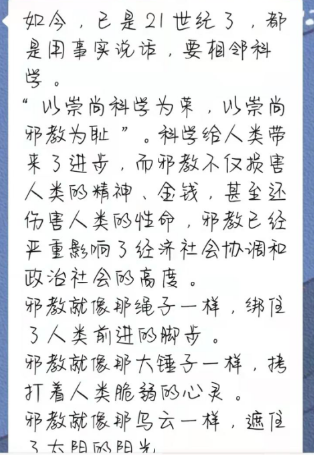 如今，已是21世纪了，都
是用事实说话，要相邻科
学。
“以崇尚科学为荣，以崇尚
邪教为耻”。科学给人类带
来了进步，而邪教不仅损害
人类的精神、金钱，甚至还
伤害人类的性命，邪教已经
严重影响了经济社会协调和
政治社会的高度。
邪教就像那绳子一样，绑住
了人类前进的脚步。
邪教就像那大锤子一样，拷
打着人类脆弱的心灵。
邪教就像那乌云一样，遮住
了太阳的阳光